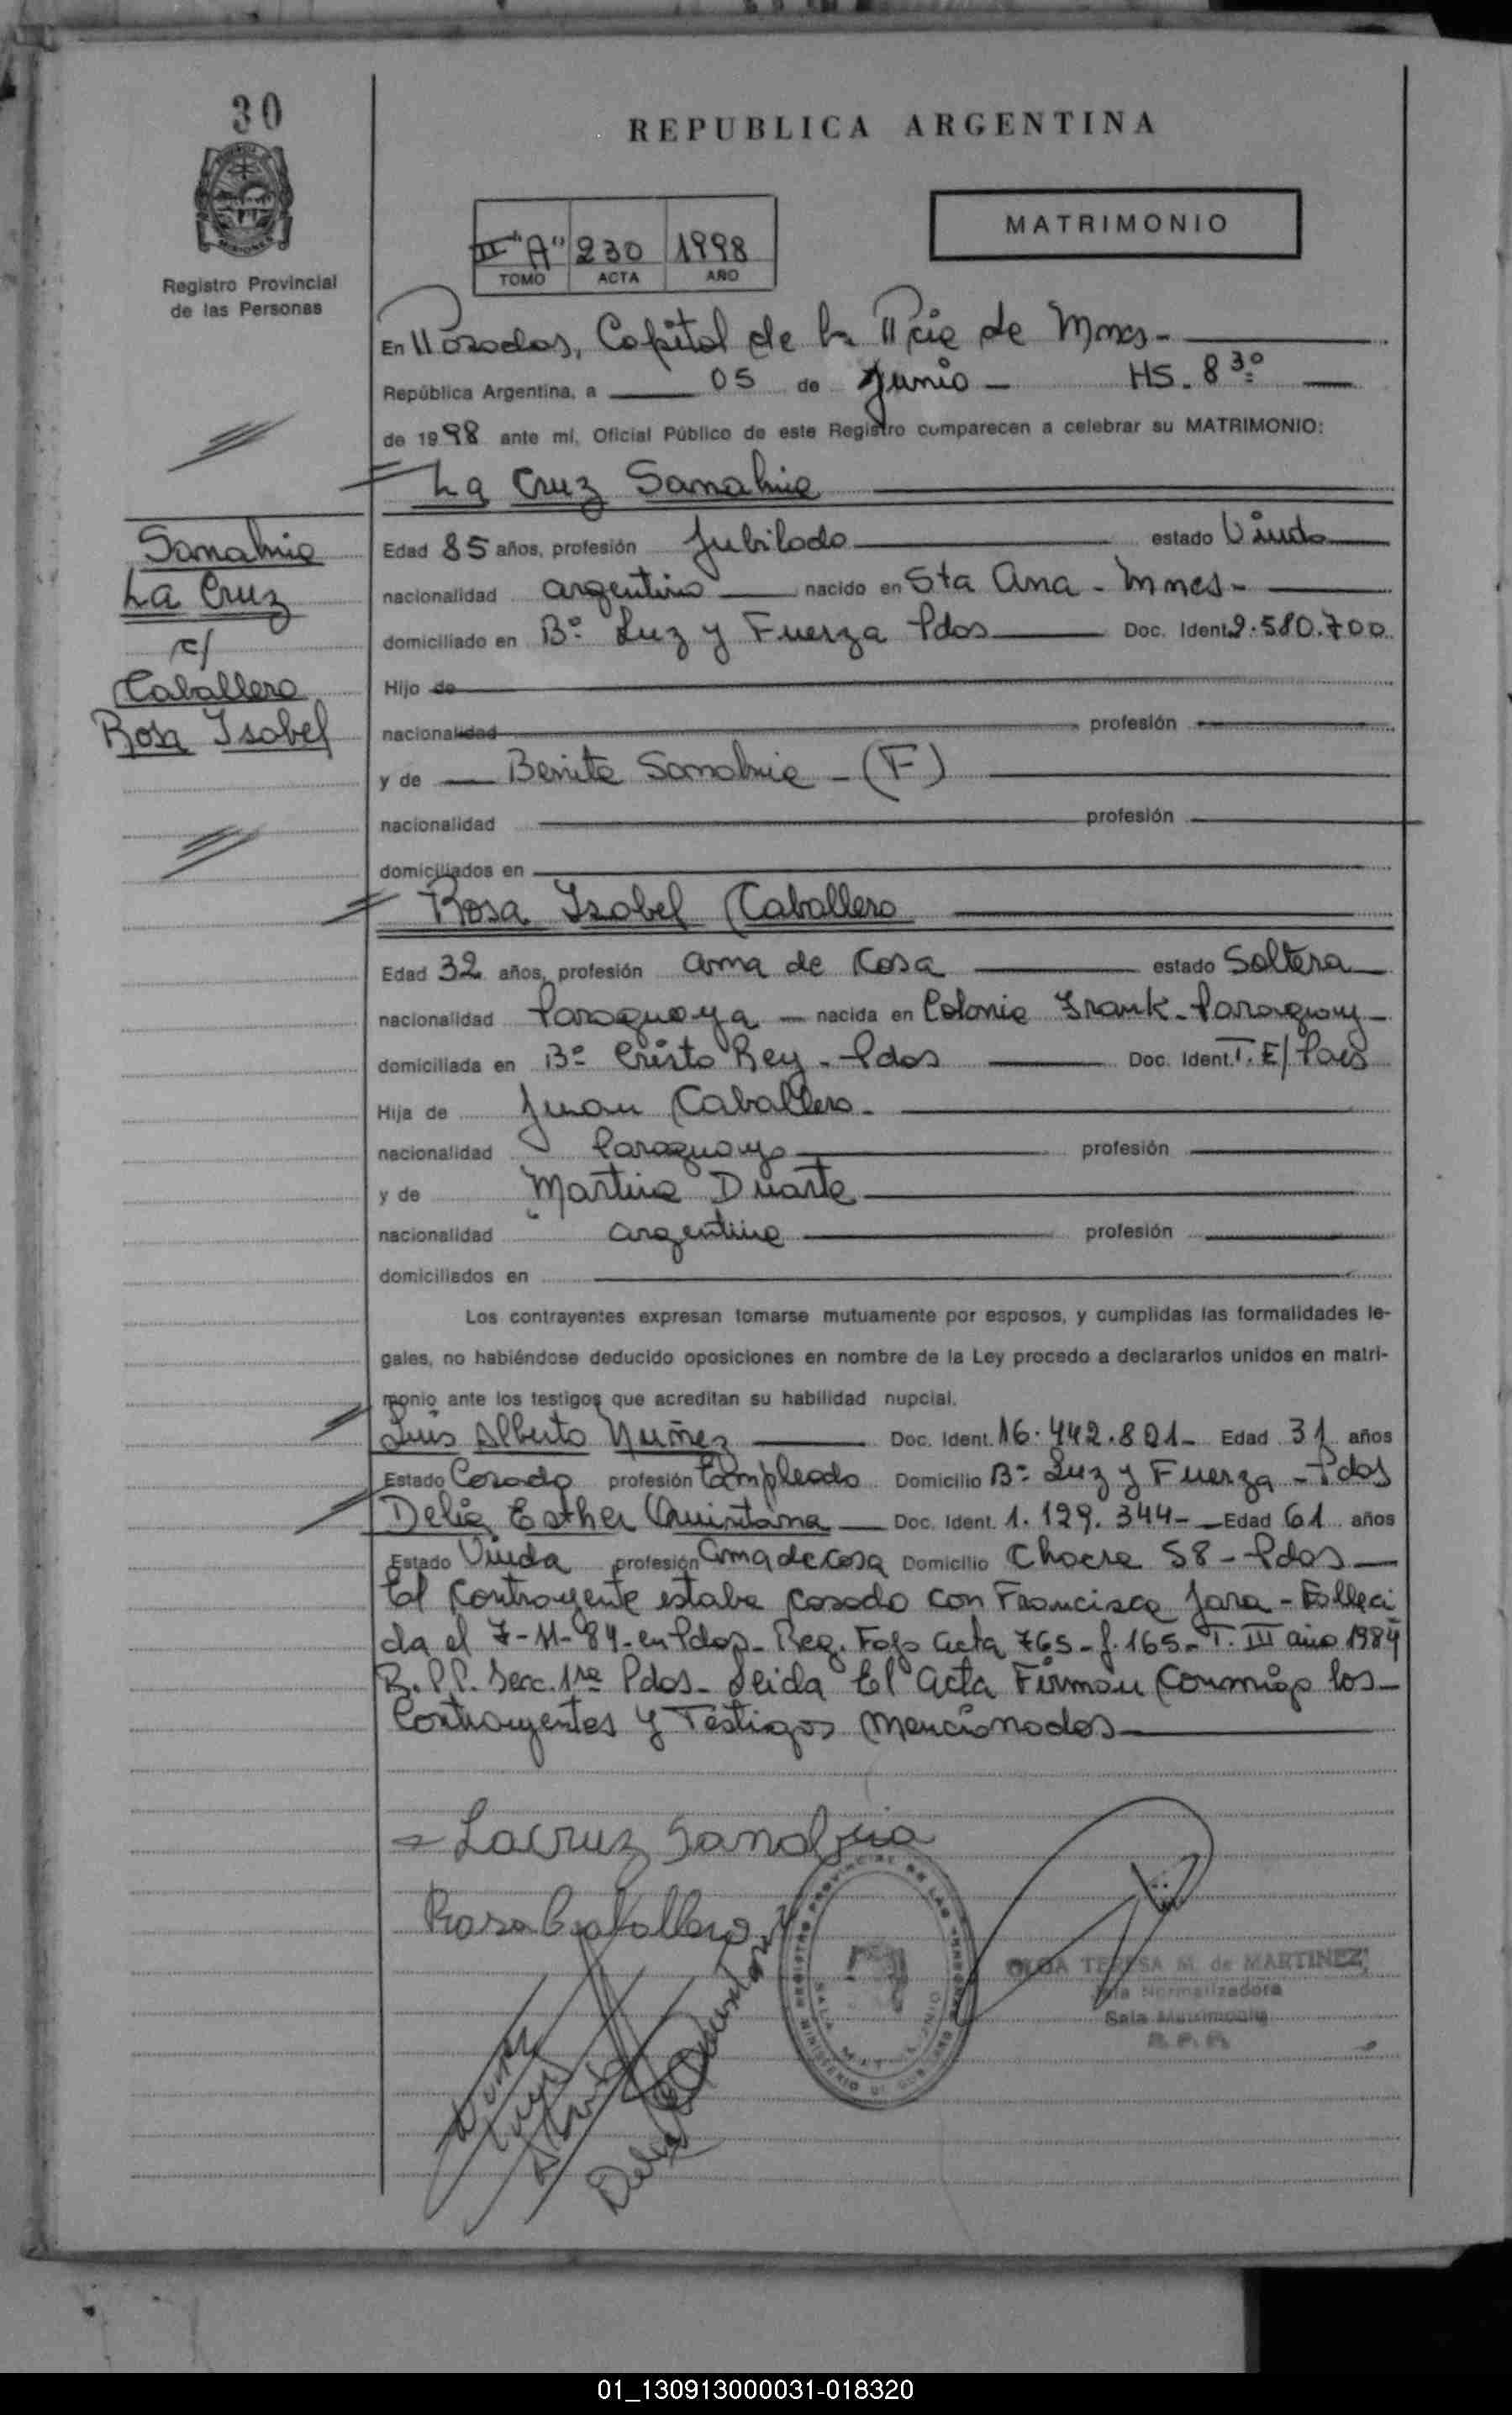 30
REPUBLICA ARGENTINA
MATRIMONIO
III "A" 230 1998
TOMO ACTA AÑO
Registro Provincial
de las Personas
En Posadas, Capital de la Pcia de Mnes-
República Argentina, a 05 de Junio - HS. 8 30
de 1998 ante mí, Oficial Público de este Registro comparecen a celebrar su MATRIMONIO:
La Cruz Sanabria
Sanabria
La Cruz
c/
Caballero
Rosa Isabel
Edad 85 años, profesión Jubilado estado Viudo
nacionalidad argentino nacido en Sta Ana - Mnes-
domiciliado en Bº Luz y Fuerza Pdas Doc. Ident. 2.580.700
Hijo de
nacionalidad profesión
y de Benita Sanabria - (F)
nacionalidad profesión
domiciliados en
Rosa Isabel Caballero
Edad 32 años, profesión ama de Casa estado Soltera
nacionalidad Paraguaya - nacida en Colonia Frank-Paraguay-
domiciliada en Bº Cristo Rey - Pdas Doc. Ident. T.E/
Hija de Juan Caballero-
nacionalidad Paraguayo profesión
y de Martina Duarte
nacionalidad argentina profesión
domiciliados en
Los contrayentes expresan tomarse mutuamente por esposos, y cumplidas las formalidades le-
gales, no habiéndose deducido oposiciones en nombre de la Ley procedo a declararlos unidos en matri-
monio ante los testigos que acreditan su habilidad nupcial.
Luis Alberto Nuñez Doc. Ident. 16.442.821- Edad 31 años
Estado Casado profesión Empleado Domicilio Bº Luz y Fuerza - Pdas
Delia Esther Quintana Doc. Ident. 1.129.344- Edad 61 años
Estado Viuda profesión ama de casa Domicilio Chacra 58 - Pdas
El Contrayente estaba casado con Francisca Jara - Falleci
da el 7-11-84- en Pdas- Reg. Fajo acta 765- f. 165- T. III año 1984
R.P.P. Secc. 1ra Pdas- Leida El acta Firman Conmigo los-
Contrayentes y Testigos mencionados
Lacruz Sanabria
Rosa Caballero
Delia Quintana
REGISTRO PROVINCIAL DE LAS PERSONAS
OLGA TERESA M. de MARTINEZ
Jefa Normalizadora
Sala Matrimonio
R. P. P.
01_130913000031-018320